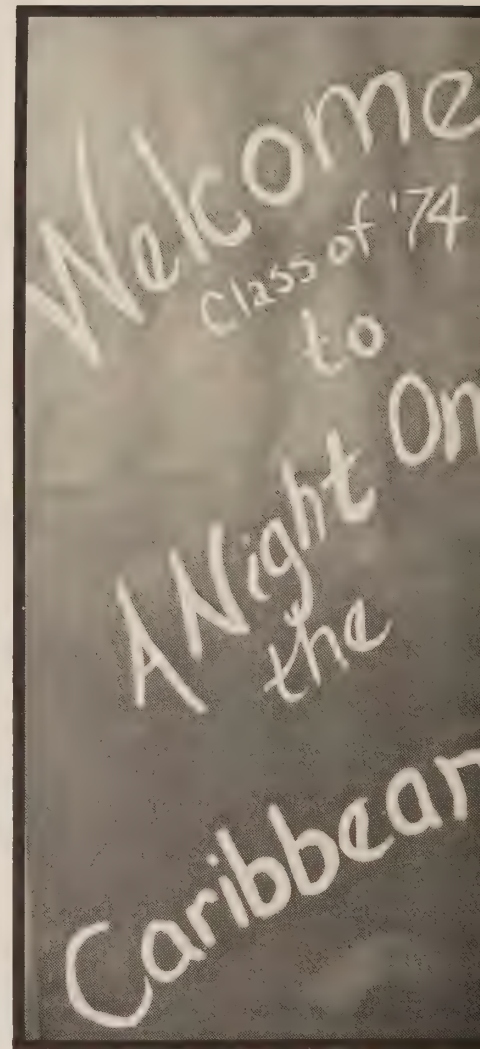 Welcome
Class of '74
to
A Night On
the
Caribbean